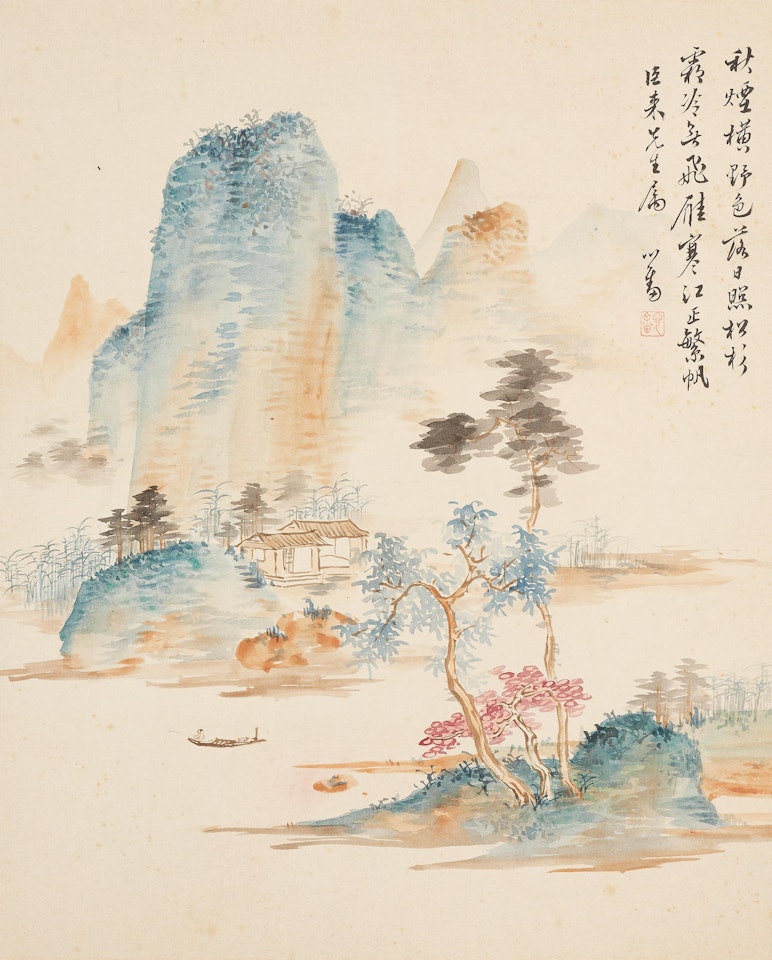 秋煙橫野色落日照松杉
霜冷無飛雁寒江正繁帆
臣來先生屬 心畬